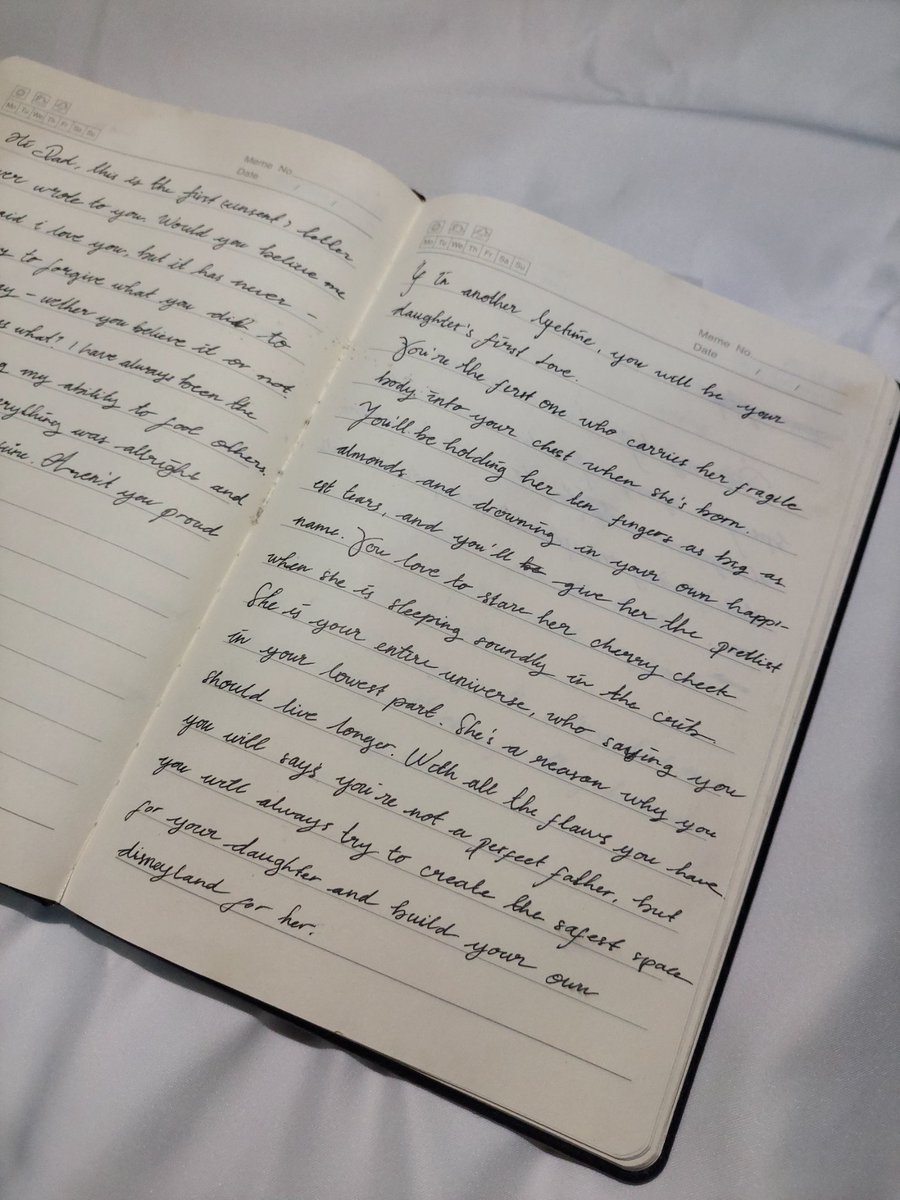 Mo Tu We Th Fr Sa Su
Meme No.
Date / /
Hi Dad, this is the first (unsent) letter
ver wrote to you. Would you believe me
aid i love you, but it has never -
y to forgive what you did to
- wether you believe it or not.
s what? I have always been the
my ability to fool others,
erything was allright and
Aren't you proud
Mo Tu We Th Fr Sa Su
Meme No.
Date / /
If In another lifetime, you will be your
daughter's first love.
You're the first one who carries her fragile
body into your chest when she's born.
You'll be holding her ten fingers as big as
almonds and drowning in your own happi-
est tears, and you'll be give her the prettist
name. You love to stare her cherry cheek
when she is sleeping soundly in the crib.
She is your entire universe, who saying you
in your lowest part. She's a reason why you
should live longer. With all the flaws you have,
you will says you're not a perfect father, but
you will always try to create the safest space
for your daughter and build your own
disneyland for her.